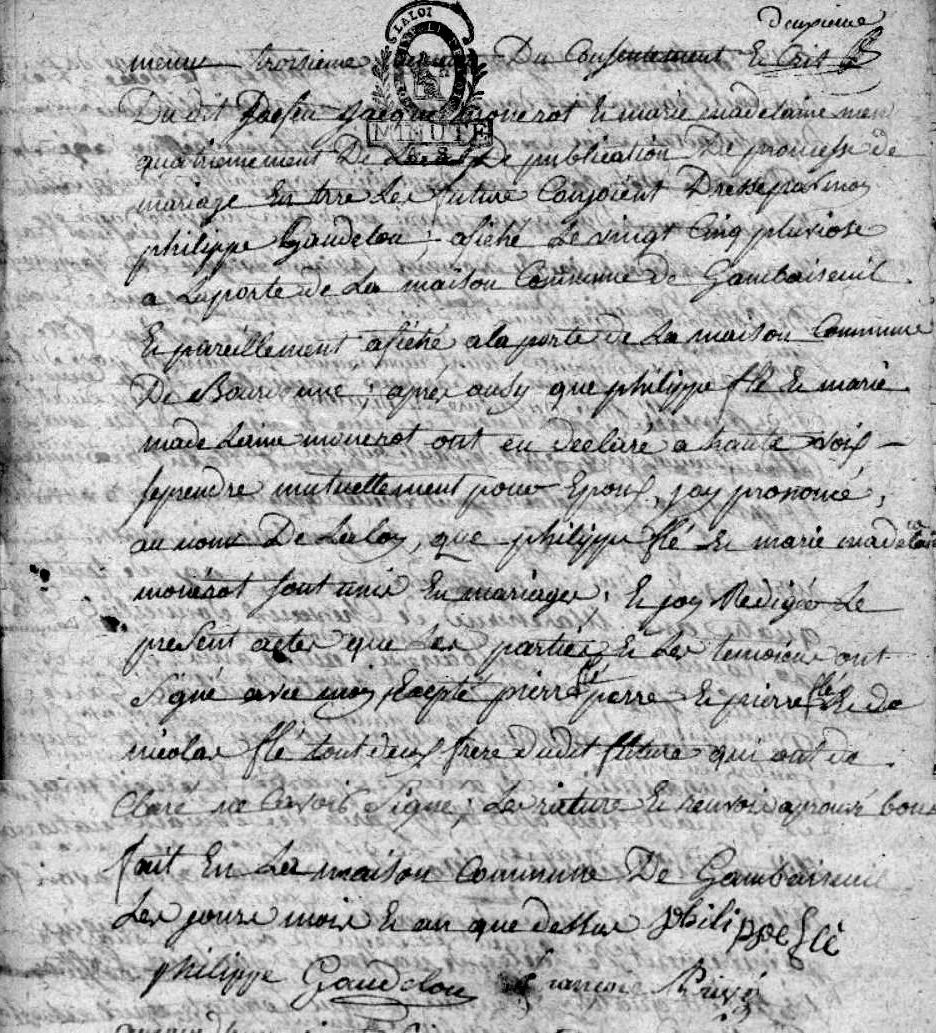 deuxieme
LA LOI
ment troisieme Du Consentement Et Crit
MINUTE
Du dit Joesen jacque monerot Et marie madelaine
quatriemement De De publication De promesse de
mariage En tre Les future Conjoient Dressé par moy
philippe Gaudelou, afiché Le vingt Cinq pluviose
a Laporte de La maison Commune de Gambaiseuil
Et pareillement afiché a la porte de La maison Commune
De Bourdonné ; aprés ausy que philippe flé Et marie
madelaine monerot ont eu declaré a haute voix
se prendre mutuellement pour Epoux, jay prononcé,
au nom De La loy, que philippe flé Et marie madelaine
monerot sont unis En mariage ; Et jay Redigé Le
present acte que Les parties Et Les temoins ont
Signé avec moy Excepté pierre flé perre Et pierre flé Et de
nicolas flé tout deux frere dudit future qui ont de
claré ne Savoir Signé ; Les rature Et renvoie aprouvé bons
fait En La maison Commune De Gambaiseuil
Les jour mois Et an que dessus philippe flé
philippe Gaudelou francois